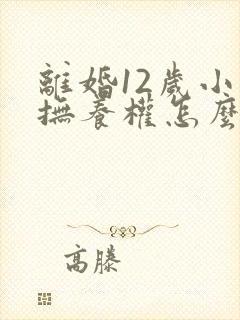 離婚12歲小
撫養權怎麼
高滕